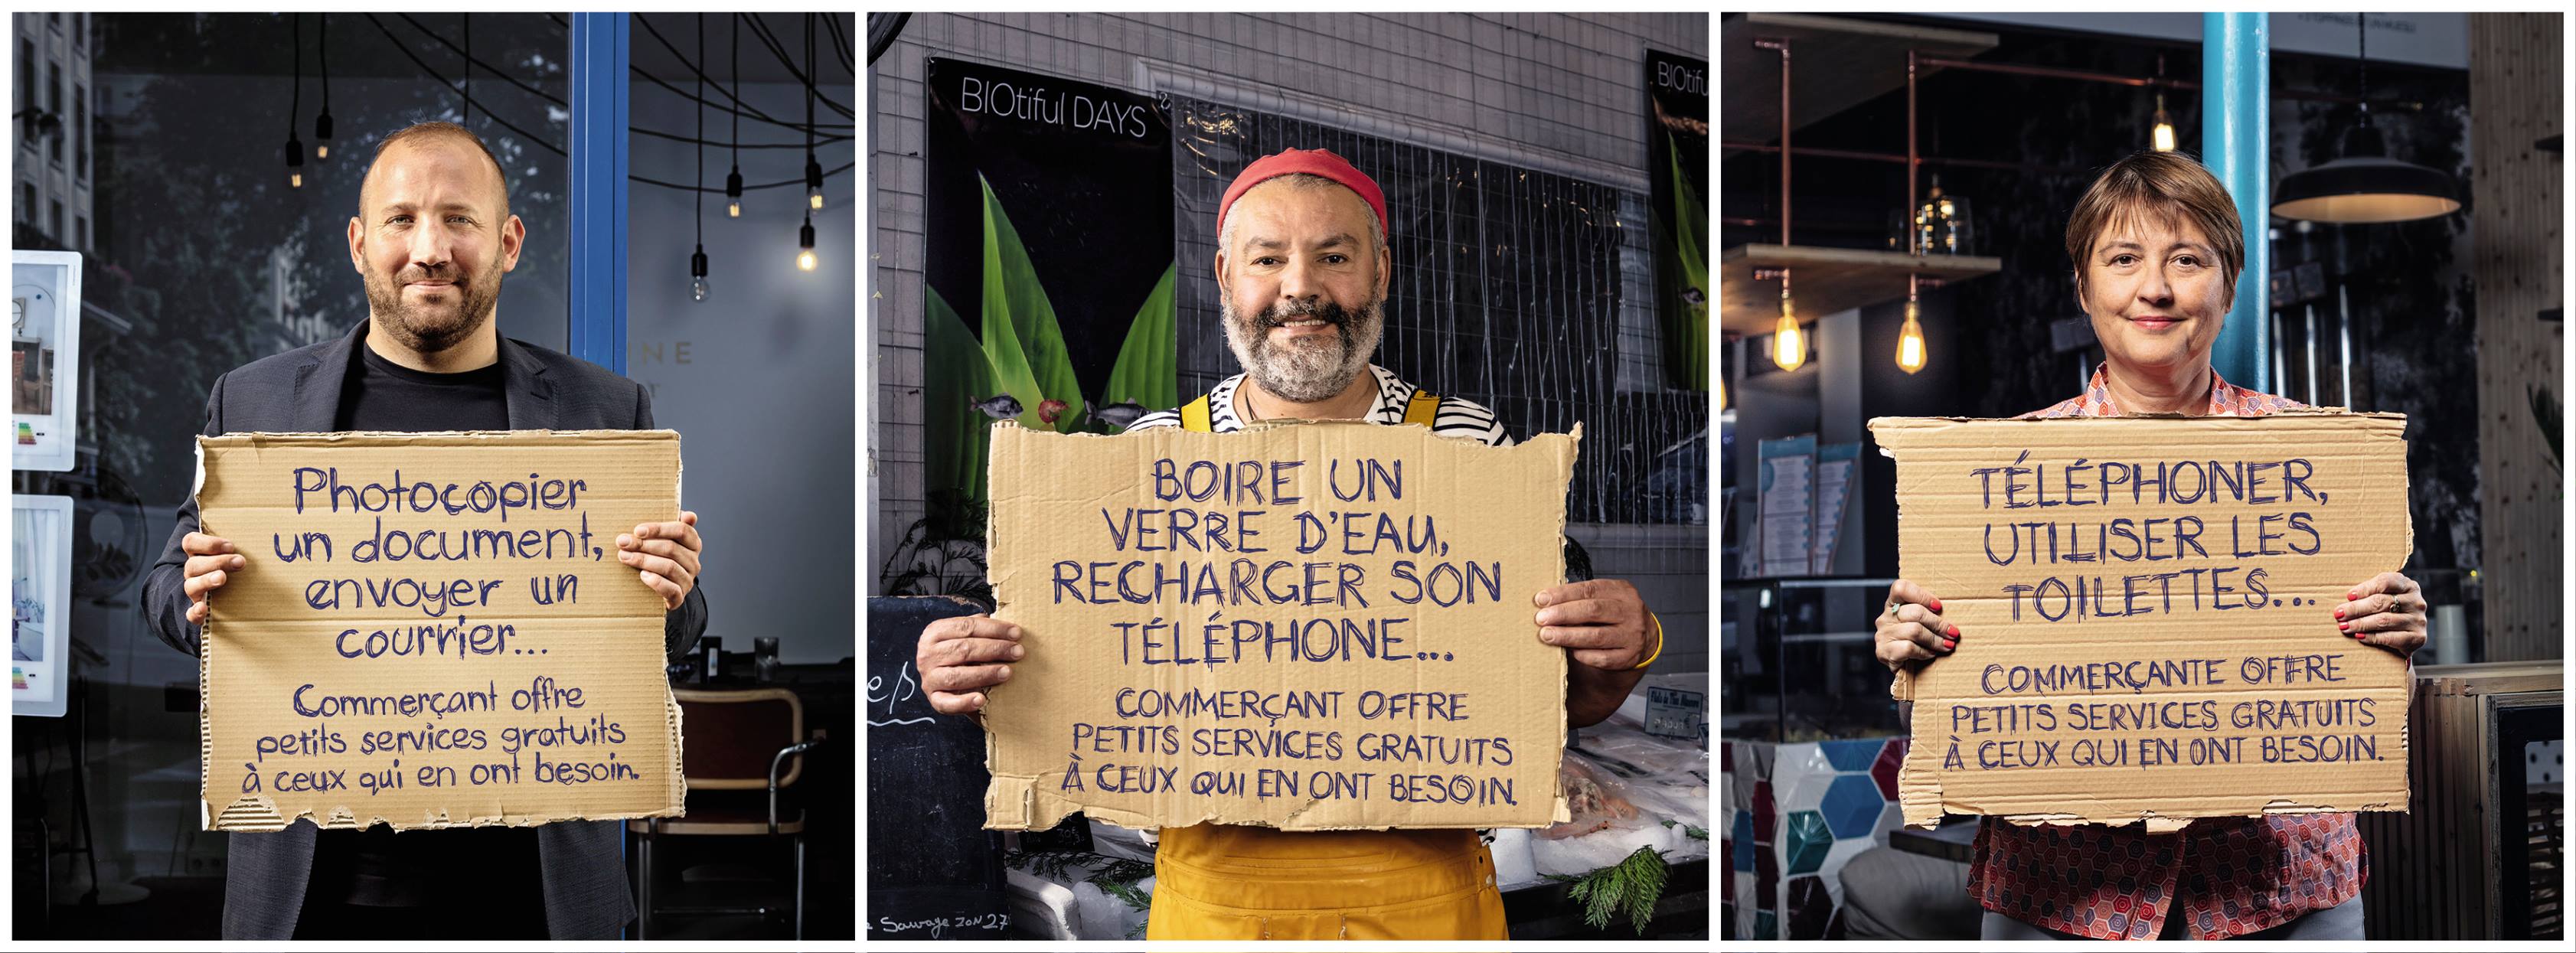 NE
T
Photocopier
un document,
envoyer un
courrier...
Commerçant offre
petits services gratuits
à ceux qui en ont besoin.
BIOtiful DAYS
BIOtifu
BOIRE UN
VERRE D'EAU,
RECHARGER SON
TÉLÉPHONE...
COMMERÇANT OFFRE
PETITS SERVICES GRATUITS
À CEUX QUI EN ONT BESOIN.
es
Sauvage ZON 27
TÉLÉPHONER,
UTILISER LES
TOILETTES...
COMMERÇANTE OFFRE
PETITS SERVICES GRATUITS
À CEUX QUI EN ONT BESOIN.